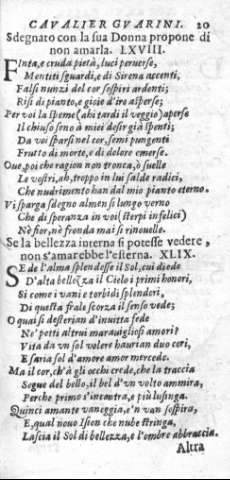 CAVALIER GVARINI. 20
Sdegnato con la sua Donna propone di
non amarla. LXVIII.
FInta, e cruda pietà, luci peruerse,
Mentiti sguardi, e di Sirena accenti,
Falsi nunzi del cor sospiri ardenti;
Risi di pianto, e gioie d'ire asperse;
Per voi la speme (ahi tardi il veggio) aperse
Il chiuso seno à miei desir già spenti;
Da voi sparsi nel cor, semi pungenti
Frutto di morte, e di dolore emerse.
Oue, poi che ragion non tronca, ò suelle
Le vostri, ah, troppo in lui salde radici,
Che nudrimento han dal mio pianto eterno.
Vi sparga sdegno almen sì lungo verno
Che di speranza in voi (sterpi infelici)
Nè fior, nè fronda mai si rinouelle.
Se la bellezza interna si potesse vedere,
non s'amarebbe l'esterna. XLIX.
SE de l'alma splendesse il Sol, cui diede
D'alta bellezza il Cielo i primi honori,
Sì come i vani e torbidi splendori,
Di questa frale scorza il senso vede;
O quai si desterian d'inuitta fede
Ne' petti altrui marauigliosi amori?
Vita da vn sol volere haurian duo cori,
E saria sol d'amore amor mercede.
Ma il cor, ch'à gli occhi crede, che la traccia
Segue del bello, il bel d'vn volto ammira,
Perche primo s'incontra, e più lusinga.
Quinci amante vaneggia, e'n van sospira,
E, qual nouo Ision che nube stringa,
Lascia il Sol di bellezza, e l'ombre abbraccia.
Altra